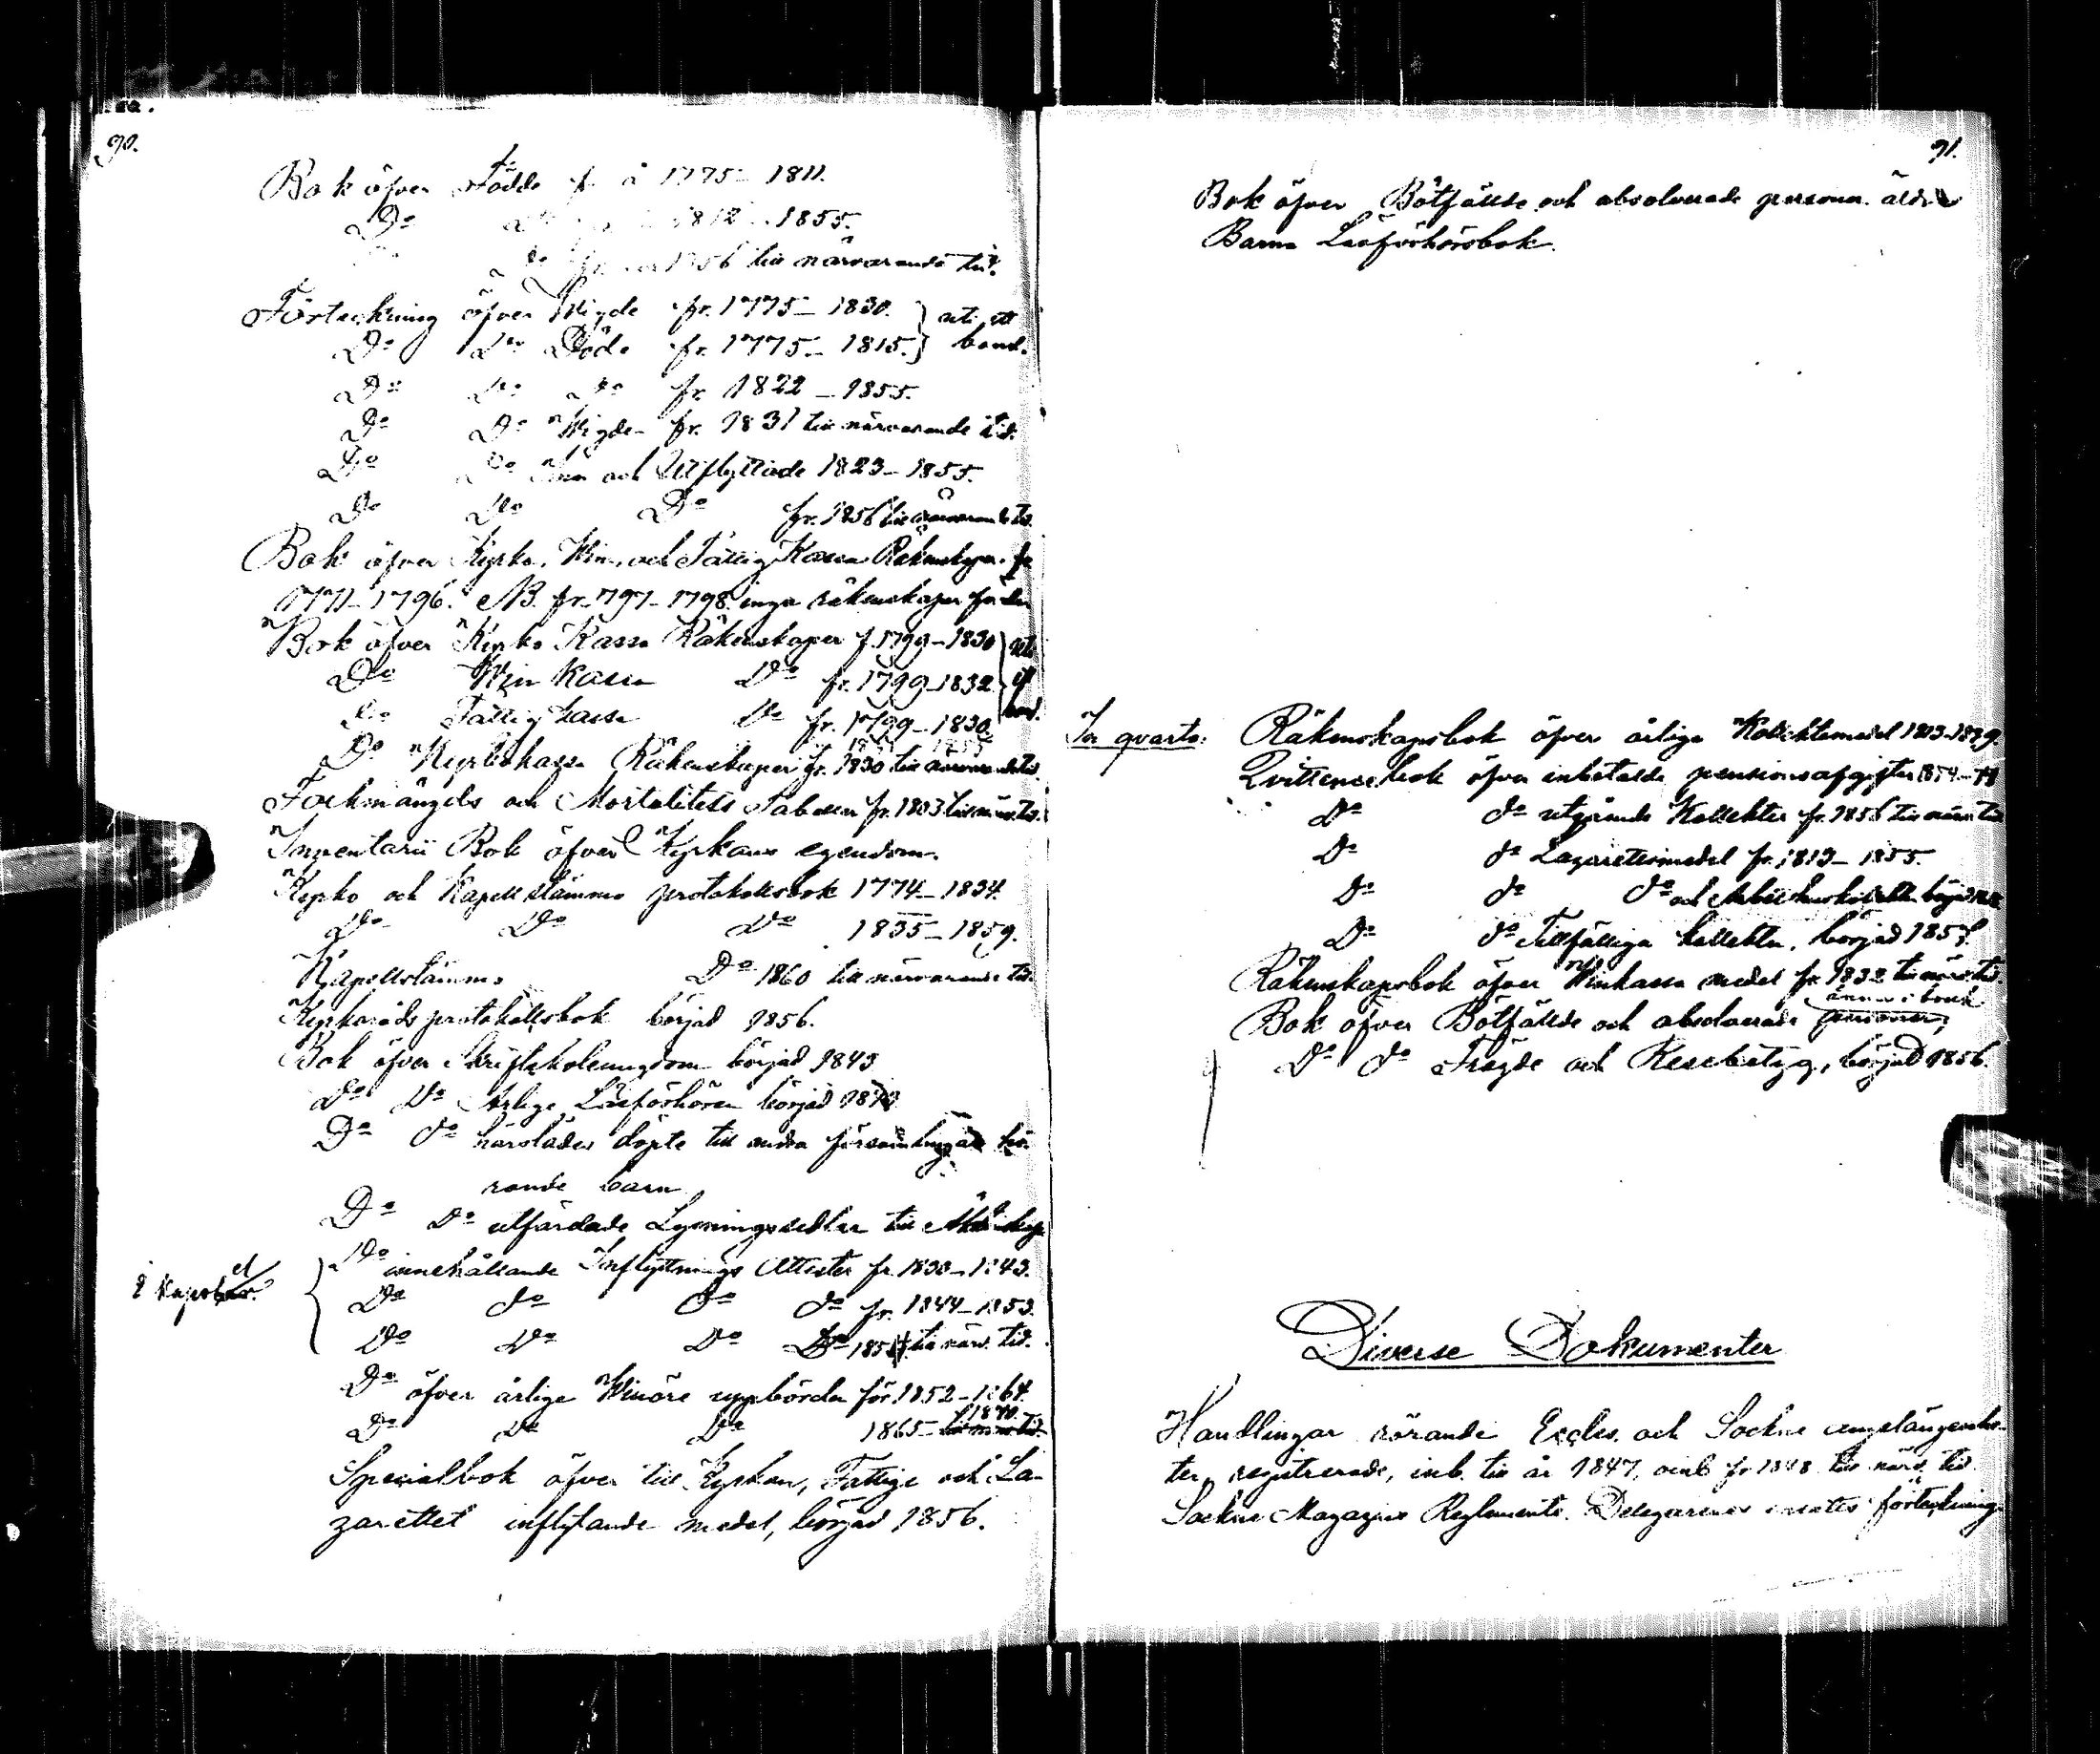 90.
Bok öfver Födde fr. å 1775 – 1811.
Do 1812 – 1855.
Do fr. 1856 till närvarande tid.
Förteckning öfver Wigde fr. 1775 – 1830. } uti ett
Do Do Döde fr. 1775 – 1815. } band.
Do Do Do fr. 1822 – 1855.
Do Do Wigde fr. 1831 till närvarande tid.
Do Do Inn och Utflyttade 1823 – 1855.
Do Do Do fr. 1856 till närvarande tid.
Bok öfver Kyrko, Win och Fattig Kassa Räkenskaper fr
1771 – 1796. NB. fr. 1797 – 1798 inga räkenskaper
Bok öfver Kyrko Kassa Räkenskaper f. 1799 – 1830 } uti
Do Win Kassa Do fr. 1799 – 1832 }
Do Fattig Kassa Do fr. 1799 – 1830. } band.
Do Kyrkokassa Räkenskaper fr. 1830 till närvarande tid.
Folkmängds och Mortalitets Tabeller fr. 1803 till närv. tid.
Inventarii Bok öfver Kyrkans egendom.
Kyrko och Kapellstämmo protokollsbok 1774 – 1834.
Do Do Do 1835 – 1859.
Kapellstämmo Do 1860 till närvarande tid.
Kyrkoråds protokollsbok börjad 1856.
Bok öfver Skriftskoleungdom börjad 1843
Do Do Årliga Läsförhören börjad
Do do härstädes döpte till andra församlingar hö-
rande barn
Do Do utfärdade Lysningssedlar till Äktenskap
Do innehållande Inflyttnings Attester fr. 1830 – 1843.
Do do Do do fr. 1844 – 1853.
Do Do Do Do 1854 till närv. tid.
Do öfver årlige Winöre uppbörden för 1852 – 1864.
1870.
Do Do Do 1865 – till närv. tid.
Specialbok öfver till Kyrkan, Fattige och La-
zarettet inflytande medel, börjad 1856.
91.
Bok öfver Bötfällde och absolverade personer. äldre
Barna Läsförhörsbok.
In qvarto: Räkenskapsbok öfver årliga Kollektmedel
Qvittencebok öfver inbetalde pensionsafgifter
Do do utgående Kollekter fr. 1856 till närv. tid
Do do Lazarettsmedel fr. 1813 – 1855.
Do do do och
Do do Tillfälliga kollekter, börjad
Räkenskapsbok öfver Winkassa medel fr. 1832 till närv. tid.
ännu i bruk
Bok öfver Bötfällde och absolverade personer,
Do do Frägde och Resebetyg, börjad 1856.
Diverse Dokumenter
Handlingar rörande Eccles. och Sockne angelägenhe-
ter, registrerade, inb. till år 1847, oinb fr 1848 till närv. tid
Sockne Magazins Reglemente. förteckning